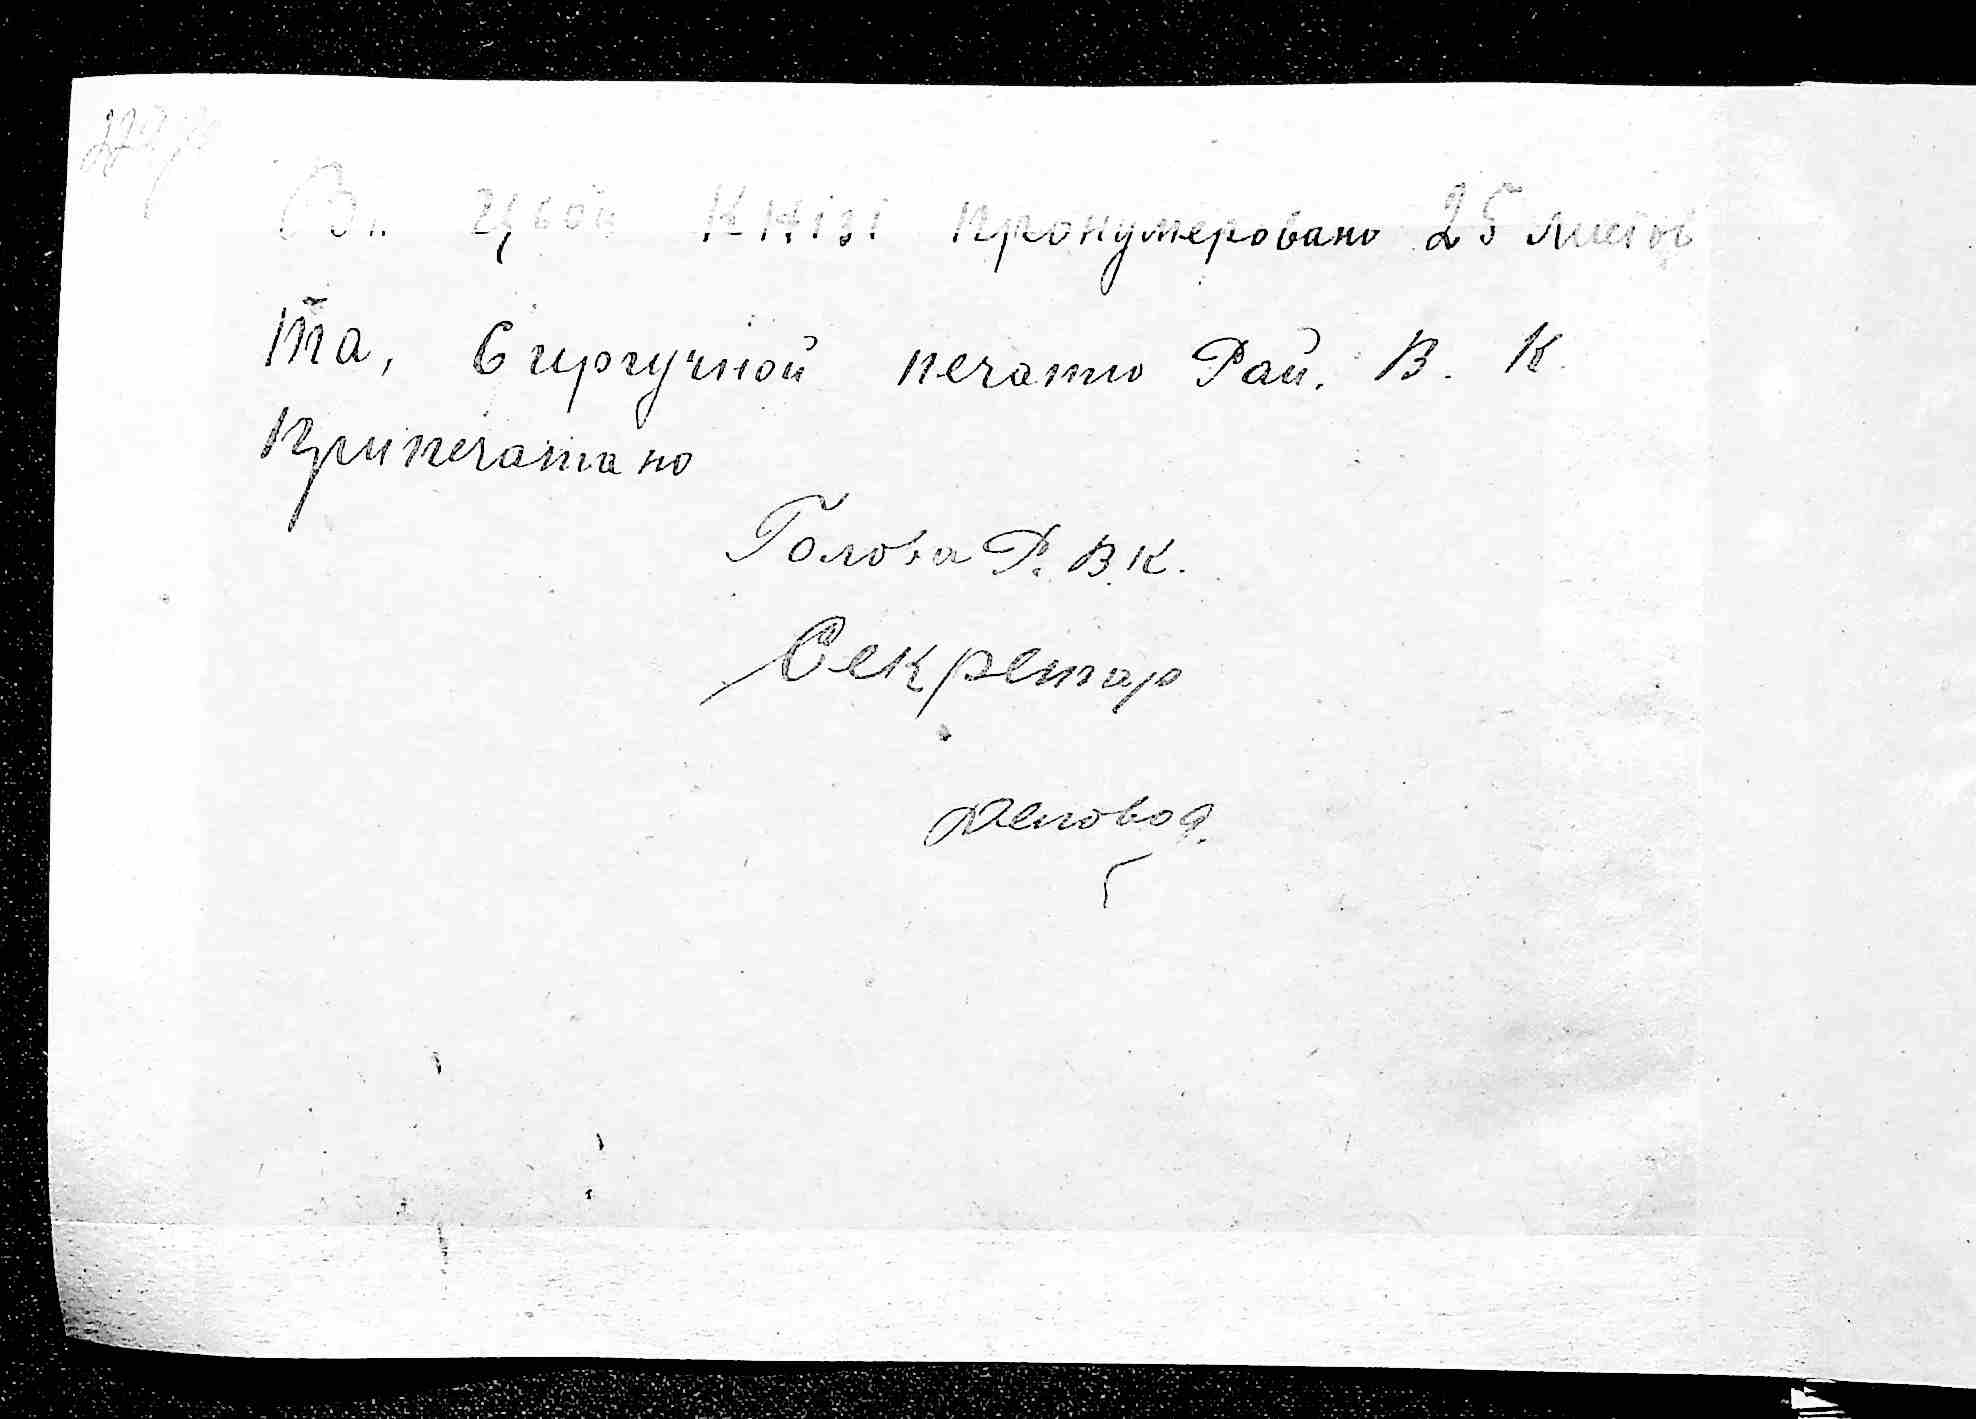 В цьой Кнізі пронумеровано 25 листов
Та, Сургучной печатю Рай. В. К.
Припечатано
Голова Р. В. К.
Секретар
Деловод.